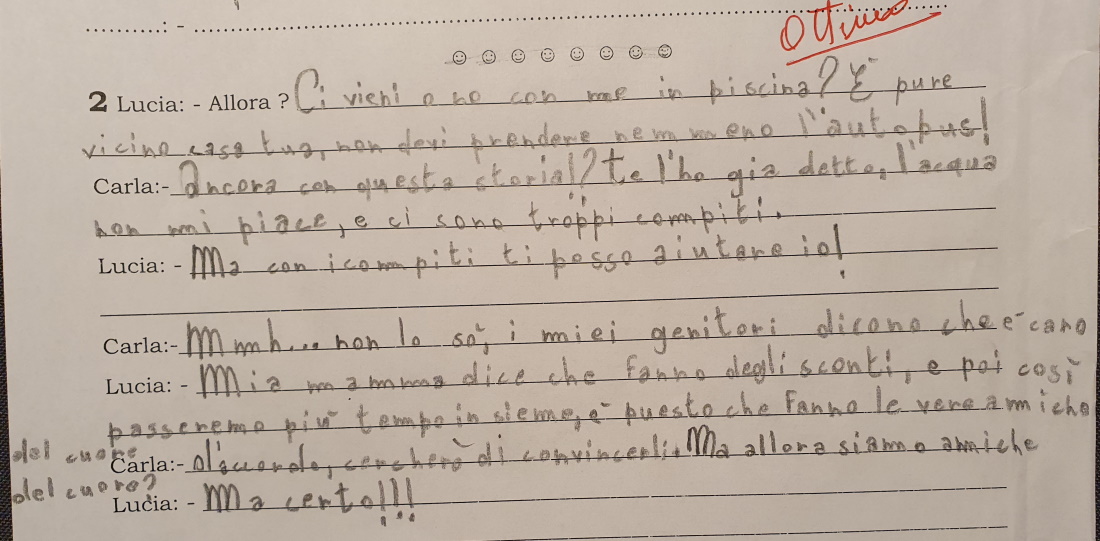 ..........: - ..........................................
Ottimo
2 Lucia: - Allora ? Ci vieni o no con me in piscina? E' pure
vicino casa tua, non devi prendere nemmeno l'autobus!
Carla:- Ancora con questa storia!? te l'ho gia detto, l'acqua
non mi piace, e ci sono troppi compiti.
Lucia: - Ma con i compiti ti posso aiutare io!
Carla:- Mmmh... non lo so, i miei genitori dicono che e' caro
Lucia: - Mia mamma dice che fanno degli sconti, e poi così
passeremo più tempo in sieme, e' questo che fanno le vere amiche
del cuore
Carla:- D'accordo, cercherò di convincerli. Ma allora siamo amiche
del cuore?
Lucia: - Ma certo!!!